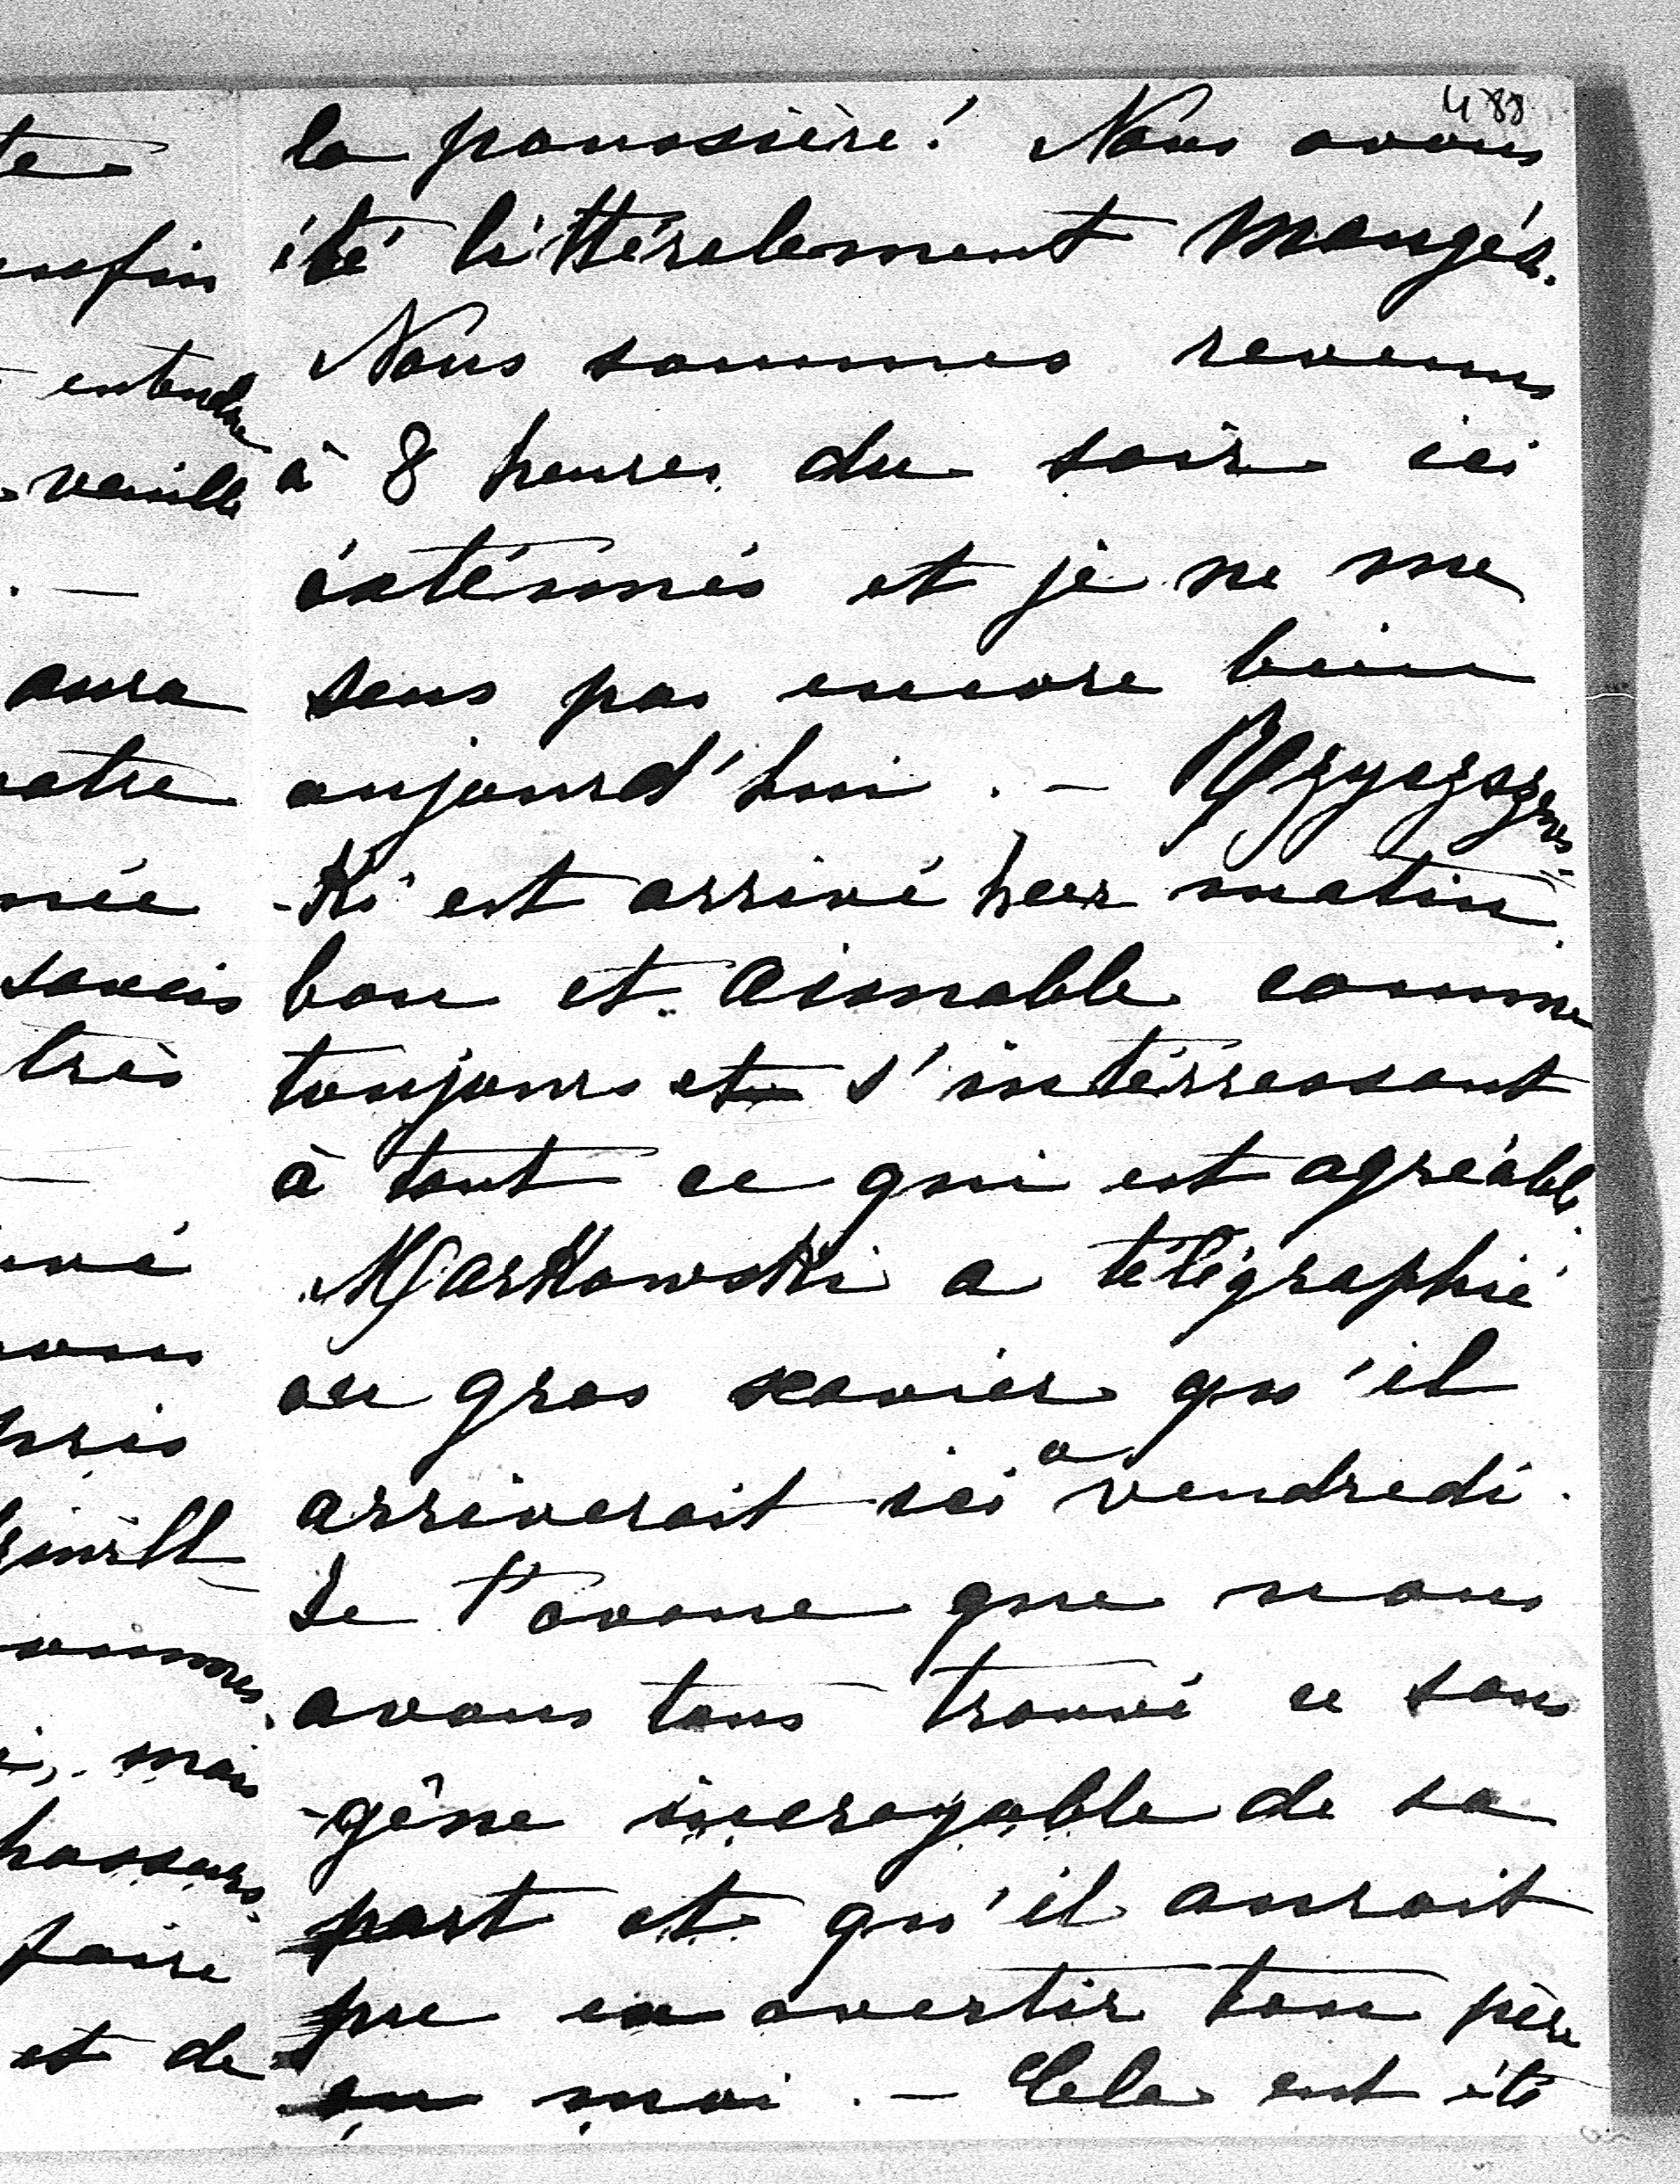 488
la poussière! Nous avons
été littéralement mangés.
Nous sommes revenus
à 8 heures du soir ici
exténués et je ne me
sens pas encore bien
aujourd'hui. -
-ki est arrivé hier matin
bon et aimable comme
toujours et s'intérressant
à tout ce qui est agréable.
Markowski a télégraphié
au gros Xavier qu'il
arriverait ici a vendredi.
Je t'avoue que nous
avons tous trouvé ce sans
-gêne incroyable de sa
part et qu'il aurait
pu en avertir ton père
ou moi. - Cela eut été
enfin
entendre
aura
née
très
mais
faire
et de